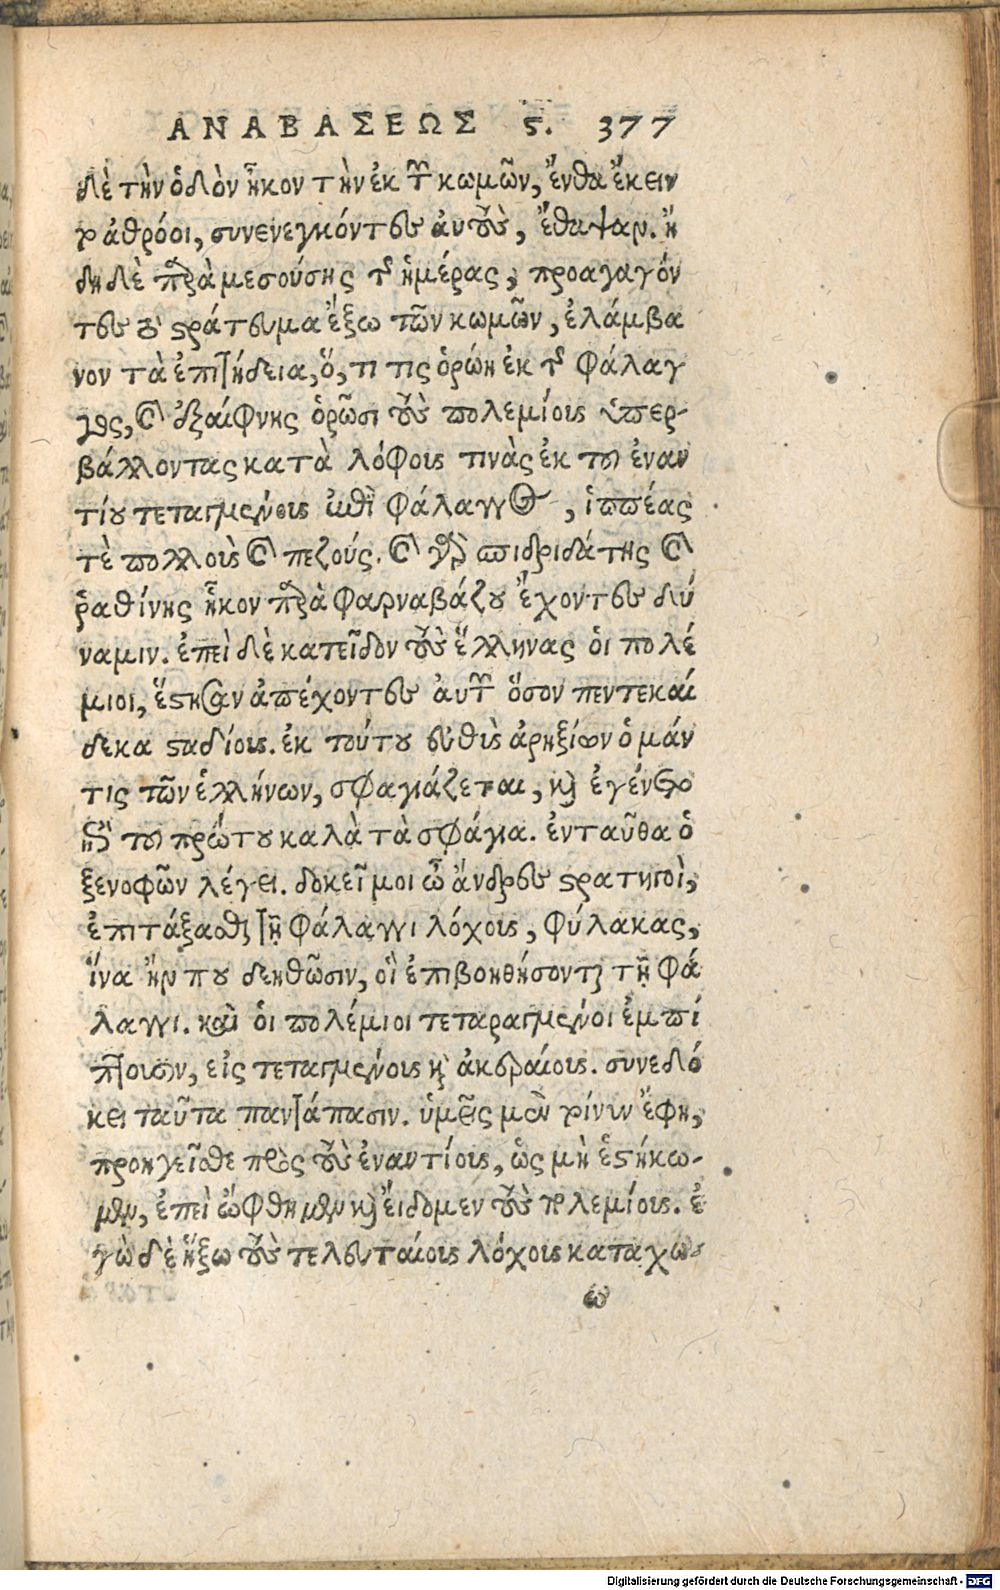 ΑΝΑΒΑΣΕΩΣ ϛ. 377
δὲ τὴν ὁδὸν ἧκον τὴν ἐκ τῶν κωμῶν, ἔνθα ἔκειν
το ἀθρόοι, συνενεγκόντες αὐτοὺς, ἔθαψαν. ἤ
δη δὲ πρὸ μεσούσης τῆς ἡμέρας, προαγαγόν
τες τὸ στράτευμα ἔξω τῶν κωμῶν, ἐλάμβα
νον τὰ ἐπιτήδεια, ὅ, τι τις ὁρώη ἐκ τῆς φάλαγ
γος, καὶ ἐξαίφνης ὁρῶσι τοὺς πολεμίους ὑπερ-
βάλλοντας κατὰ λόφους τινὰς ἐκ τοῦ ἐναν
τίου τεταγμένους ἐπὶ φάλαγγος, ἱππέας
τὲ πολλοὺς καὶ πεζούς. καὶ γὰρ σπιδριδάτης καὶ
ῥαθίνης ἧκον παρὰ φαρναβάζου ἔχοντες δύ
ναμιν. ἐπεὶ δὲ κατεῖδον τοὺς ἕλληνας οἱ πολέ
μιοι, ἕστησαν ἀπέχοντες αὐτῶν ὅσον πεντεκαί
δεκα σταδίους. ἐκ τούτου εὐθὺς ἀρηξίων ὁ μάν
τις τῶν ἑλλήνων, σφαγιάζεται, καὶ ἐγένετο
ἐπὶ τοῦ πρώτου καλὰ τὰ σφάγια. ἐνταῦθα ὁ
ξενοφῶν λέγει. δοκεῖ μοι ὦ ἄνδρες στρατηγοὶ,
ἐπιτάξασθαι τῇ φάλαγγι λόχους, φύλακας,
ἵνα ἤν που δεηθῶσιν, οἳ ἐπιβοηθήσονται τῇ φά
λαγγι. καὶ οἱ πολέμιοι τεταραγμένοι ἐμπί
πτουσιν, εἰς τεταγμένους καὶ ἀκεραίους. συνεδό
κει ταῦτα παντάπασιν. ὑμεῖς μὲν τοίνυν ἔφη,
προηγεῖσθε πρὸς τοὺς ἐναντίους, ὡς μὴ ἑστήκω-
μεν, ἐπεὶ ὤφθημεν καὶ εἴδομεν τοὺς πολεμίους. ἐ
γὼ δὲ ἥξω τοὺς τελευταίους λόχους καταχω-
ω
Digitalisierung gefördert durch die Deutsche Forschungsgemeinschaft - DFG